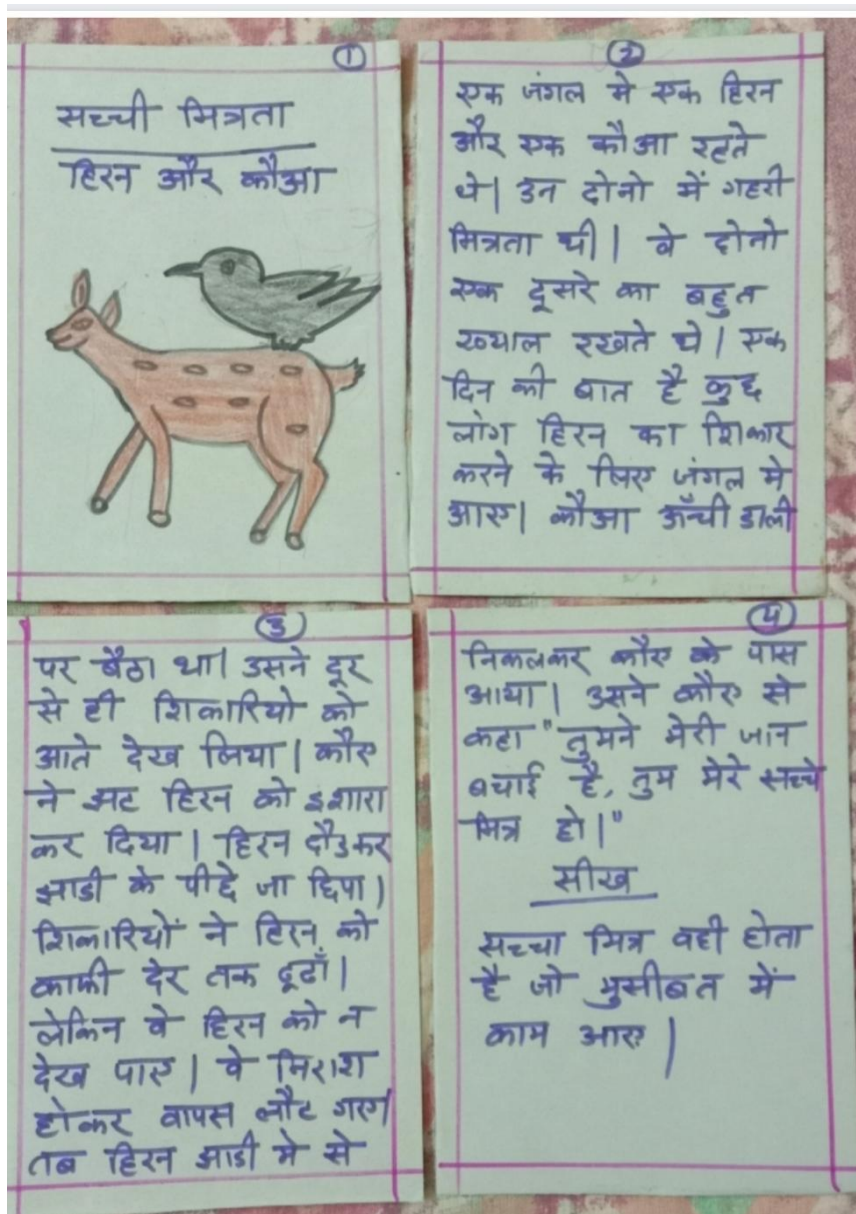 १
सच्ची मित्रता
हिरन और कौआ
२
एक जंगल मे एक हिरन
और एक कौआ रहते
थे। उन दोनो में गहरी
मित्रता थी। वे दोनो
एक दूसरे का बहुत
ख्याल रखते थे। एक
दिन की बात है कुछ
लोग हिरन का शिकार
करने के लिए जंगल मे
आए। कौआ ऊँची डाली
३
पर बैठा था। उसने दूर
से ही शिकारियो को
आते देख लिया। कौए
ने झट हिरन को इशारा
कर दिया। हिरन दौडकर
झाडी के पीछे जा छिपा।
शिकारियों ने हिरन को
काफी देर तक ढूढाँ।
लेकिन वे हिरन को न
देख पाए। वे निराश
होकर वापस लौट गए।
तब हिरन झाडी मे से
४
निकलकर कौए के पास
आया। उसने कौए से
कहा "तुमने मेरी जान
बचाई है, तुम मेरे सच्चे
मित्र हो।"
सीख
सच्चा मित्र वही होता
है जो मुसीबत में
काम आए।